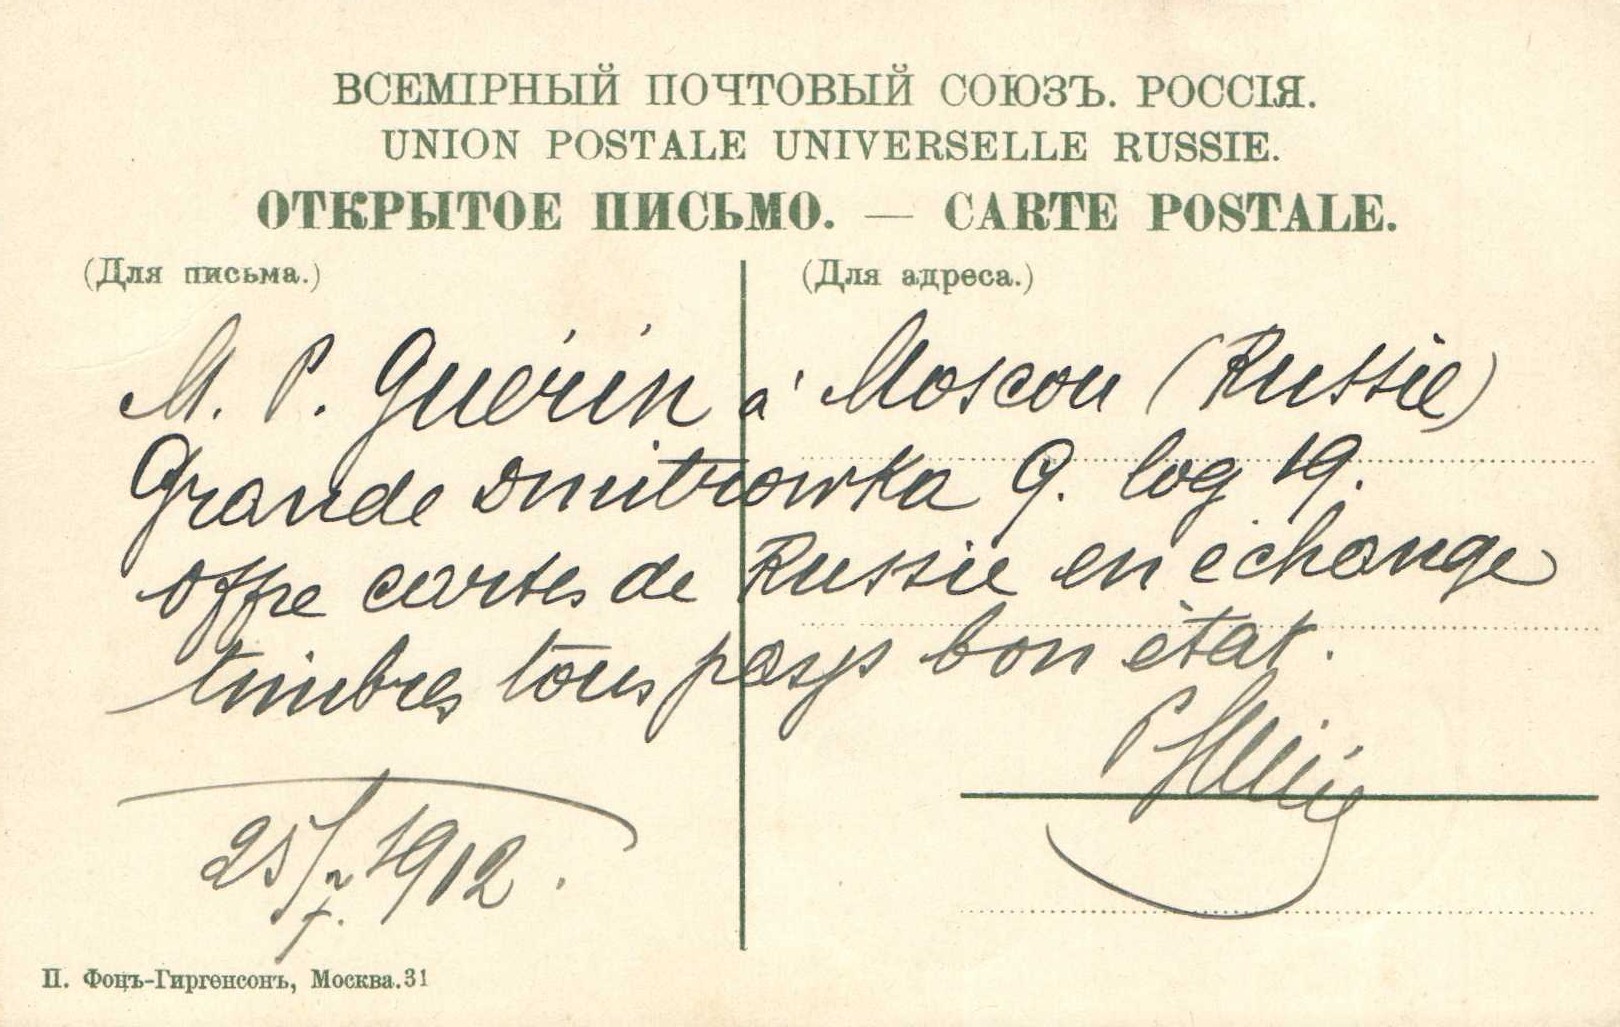 ВСЕМІРНЫЙ ПОЧТОВЫЙ СОЮЗЪ. РОССІЯ.
UNION POSTALE UNIVERSELLE RUSSIE.
ОТКРЫТОЕ ПИСЬМО. — CARTE POSTALE.
(Для письма.)
(Для адреса.)
M. P. Guérin à Moscou (Russie)
Grande Dmitrowka 9. log 19.
offre cartes de Russie en échange
timbres tous pays bon état.
25/7. 1912.
П. Фонъ-Гиргенсонъ, Москва.31